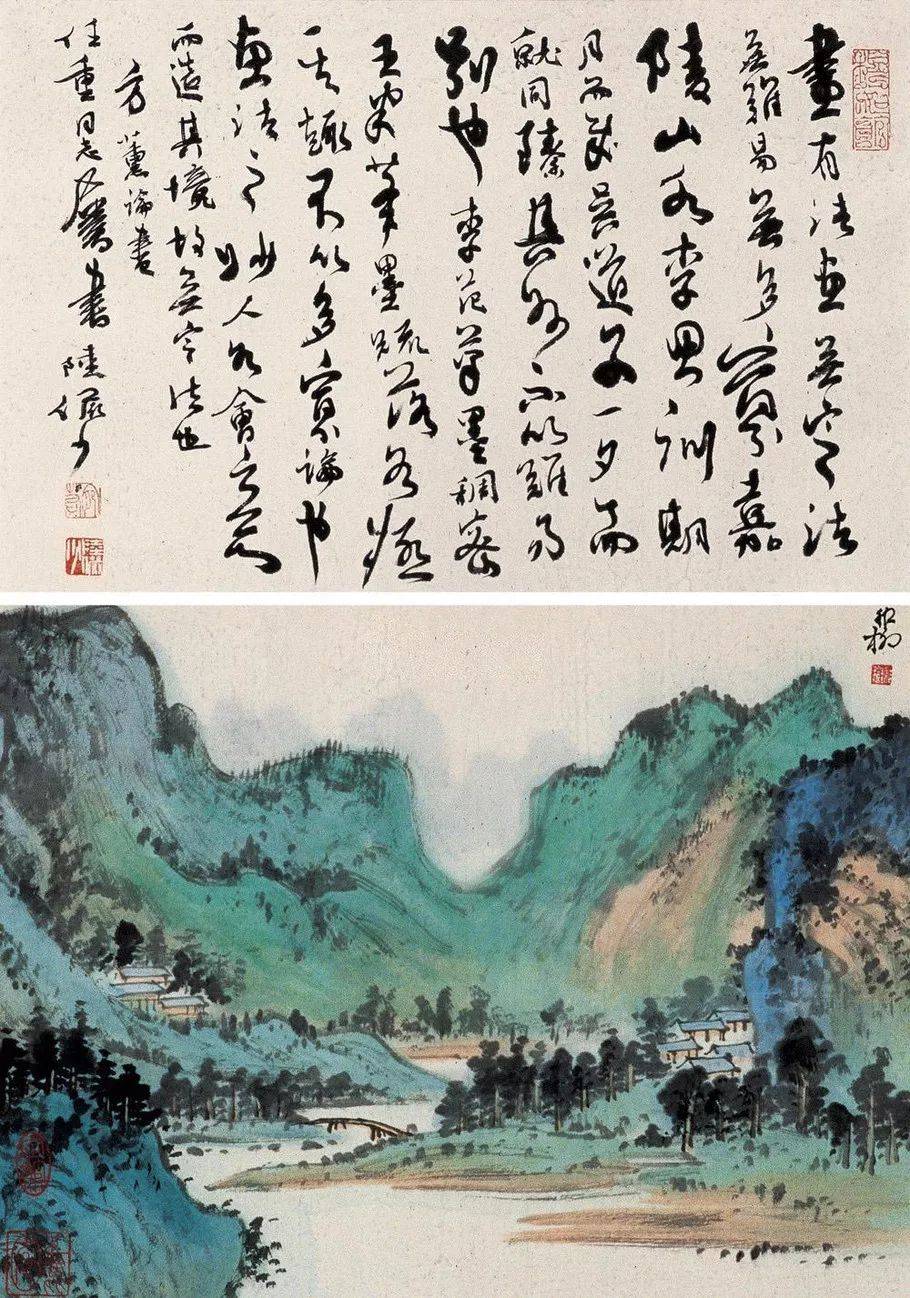 畫有法畫無定法
無難易無多寡嘉
陵山水李思訓期
月而成吳道子一夕而
就同臻其妙不以難易
別也李范筆墨稠密
王米筆墨疏落各極
其趣不以多寡論也
畫法之妙人各會之意
而造其境故無定法也
方薰論畫
任重同志屬書 陸儼少
稚柳